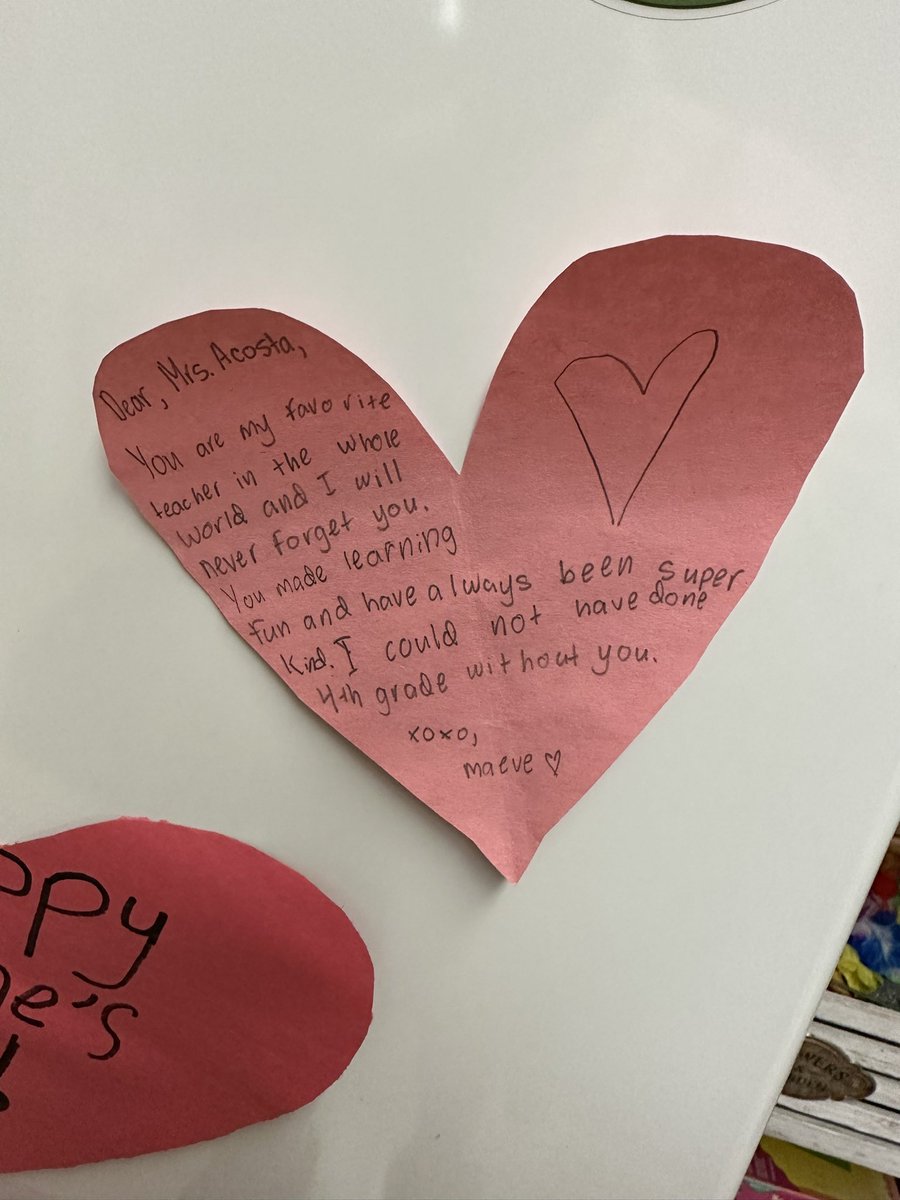 Dear, Mrs. Acosta,
You are my favorite
teacher in the whole
world and I will
never forget you.
You made learning
fun and have always been super
kind. I could not have done
4th grade without you.
xoxo,
maeve ♡
ppy
e's
!